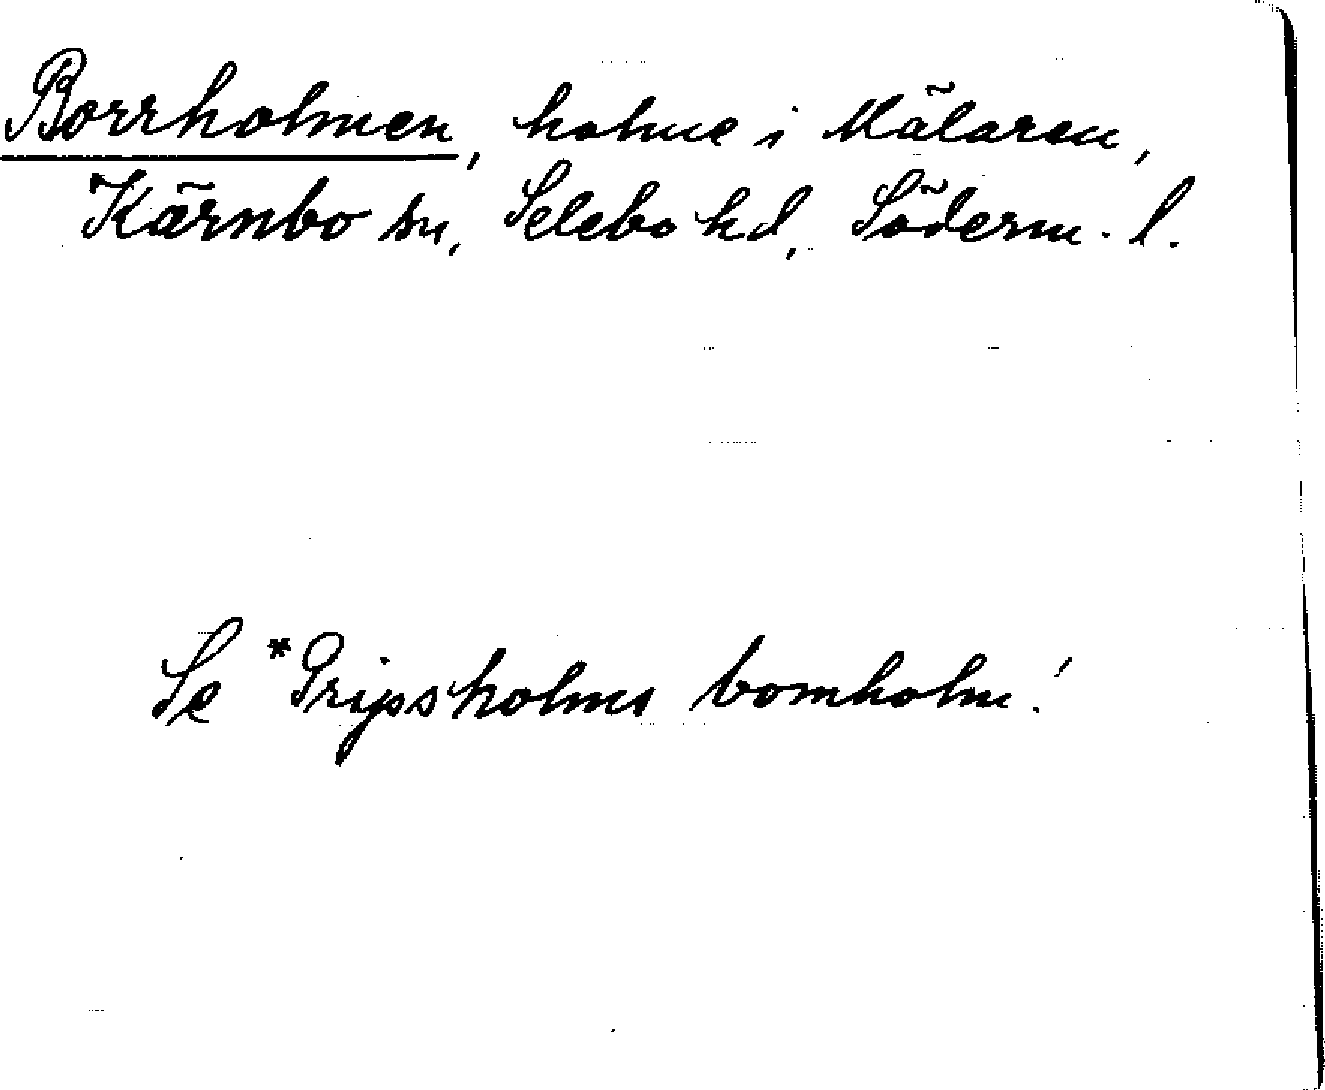 Borrholmen, holme i Mälaren,
Kärnbo sn, Selebo hd, Söderm. l.
Se *Gripsholms bomholm!